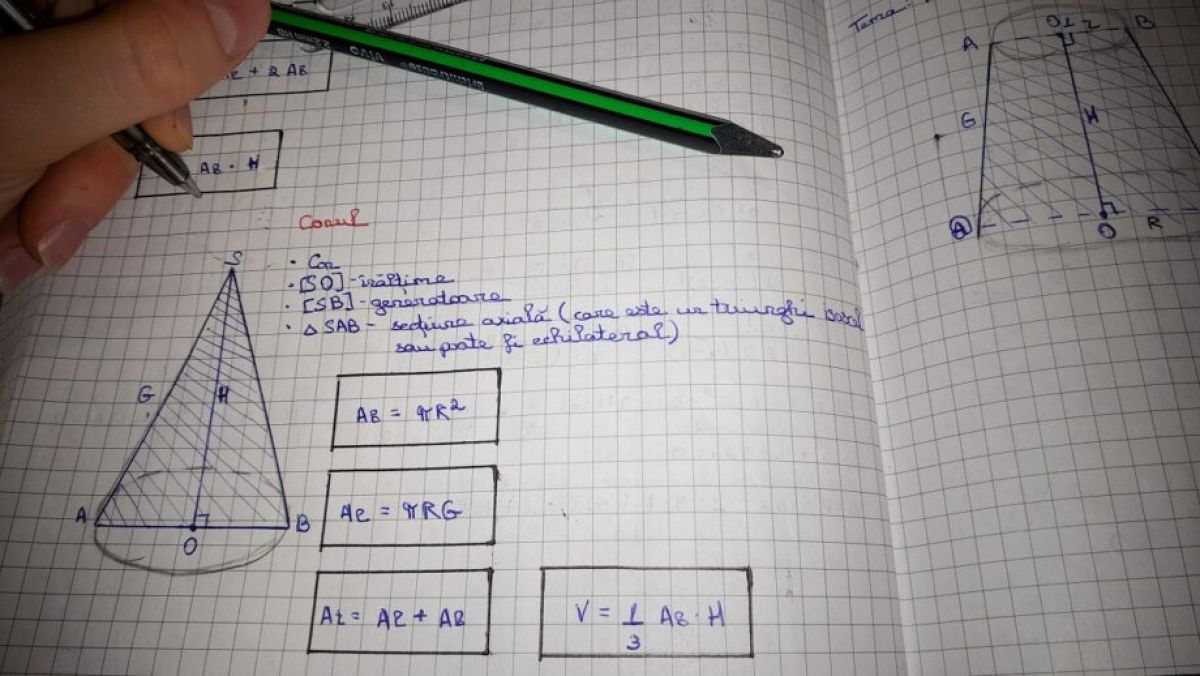 Al + 2 AB
AB · H
Conul
• Con
• [SO] - înălțime
• [SB] - generatoare
• △ SAB - secțiune axială (care este un triunghi isosel
sau poate fi echilateral)
S
G
H
A
B
O
AB = πR²
Al = πRG
At = Al + AB
V = 1/3 AB · H
VIVO
Tema:
A
O1
r
B
G
H
A
O
R